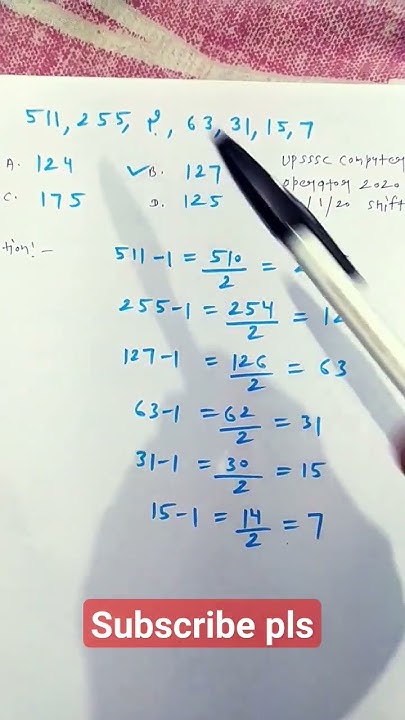 511, 255, ?, 63, 31, 15, 7
A. 124 ✓B. 127 UPSSSC Computer
C. 175 D. 125 operator 2020
/1/20 shift
tion:-
511-1 = 510/2 =
255-1 = 254/2 = 12
127-1 = 126/2 = 63
63-1 = 62/2 = 31
31-1 = 30/2 = 15
15-1 = 14/2 = 7
Subscribe pls